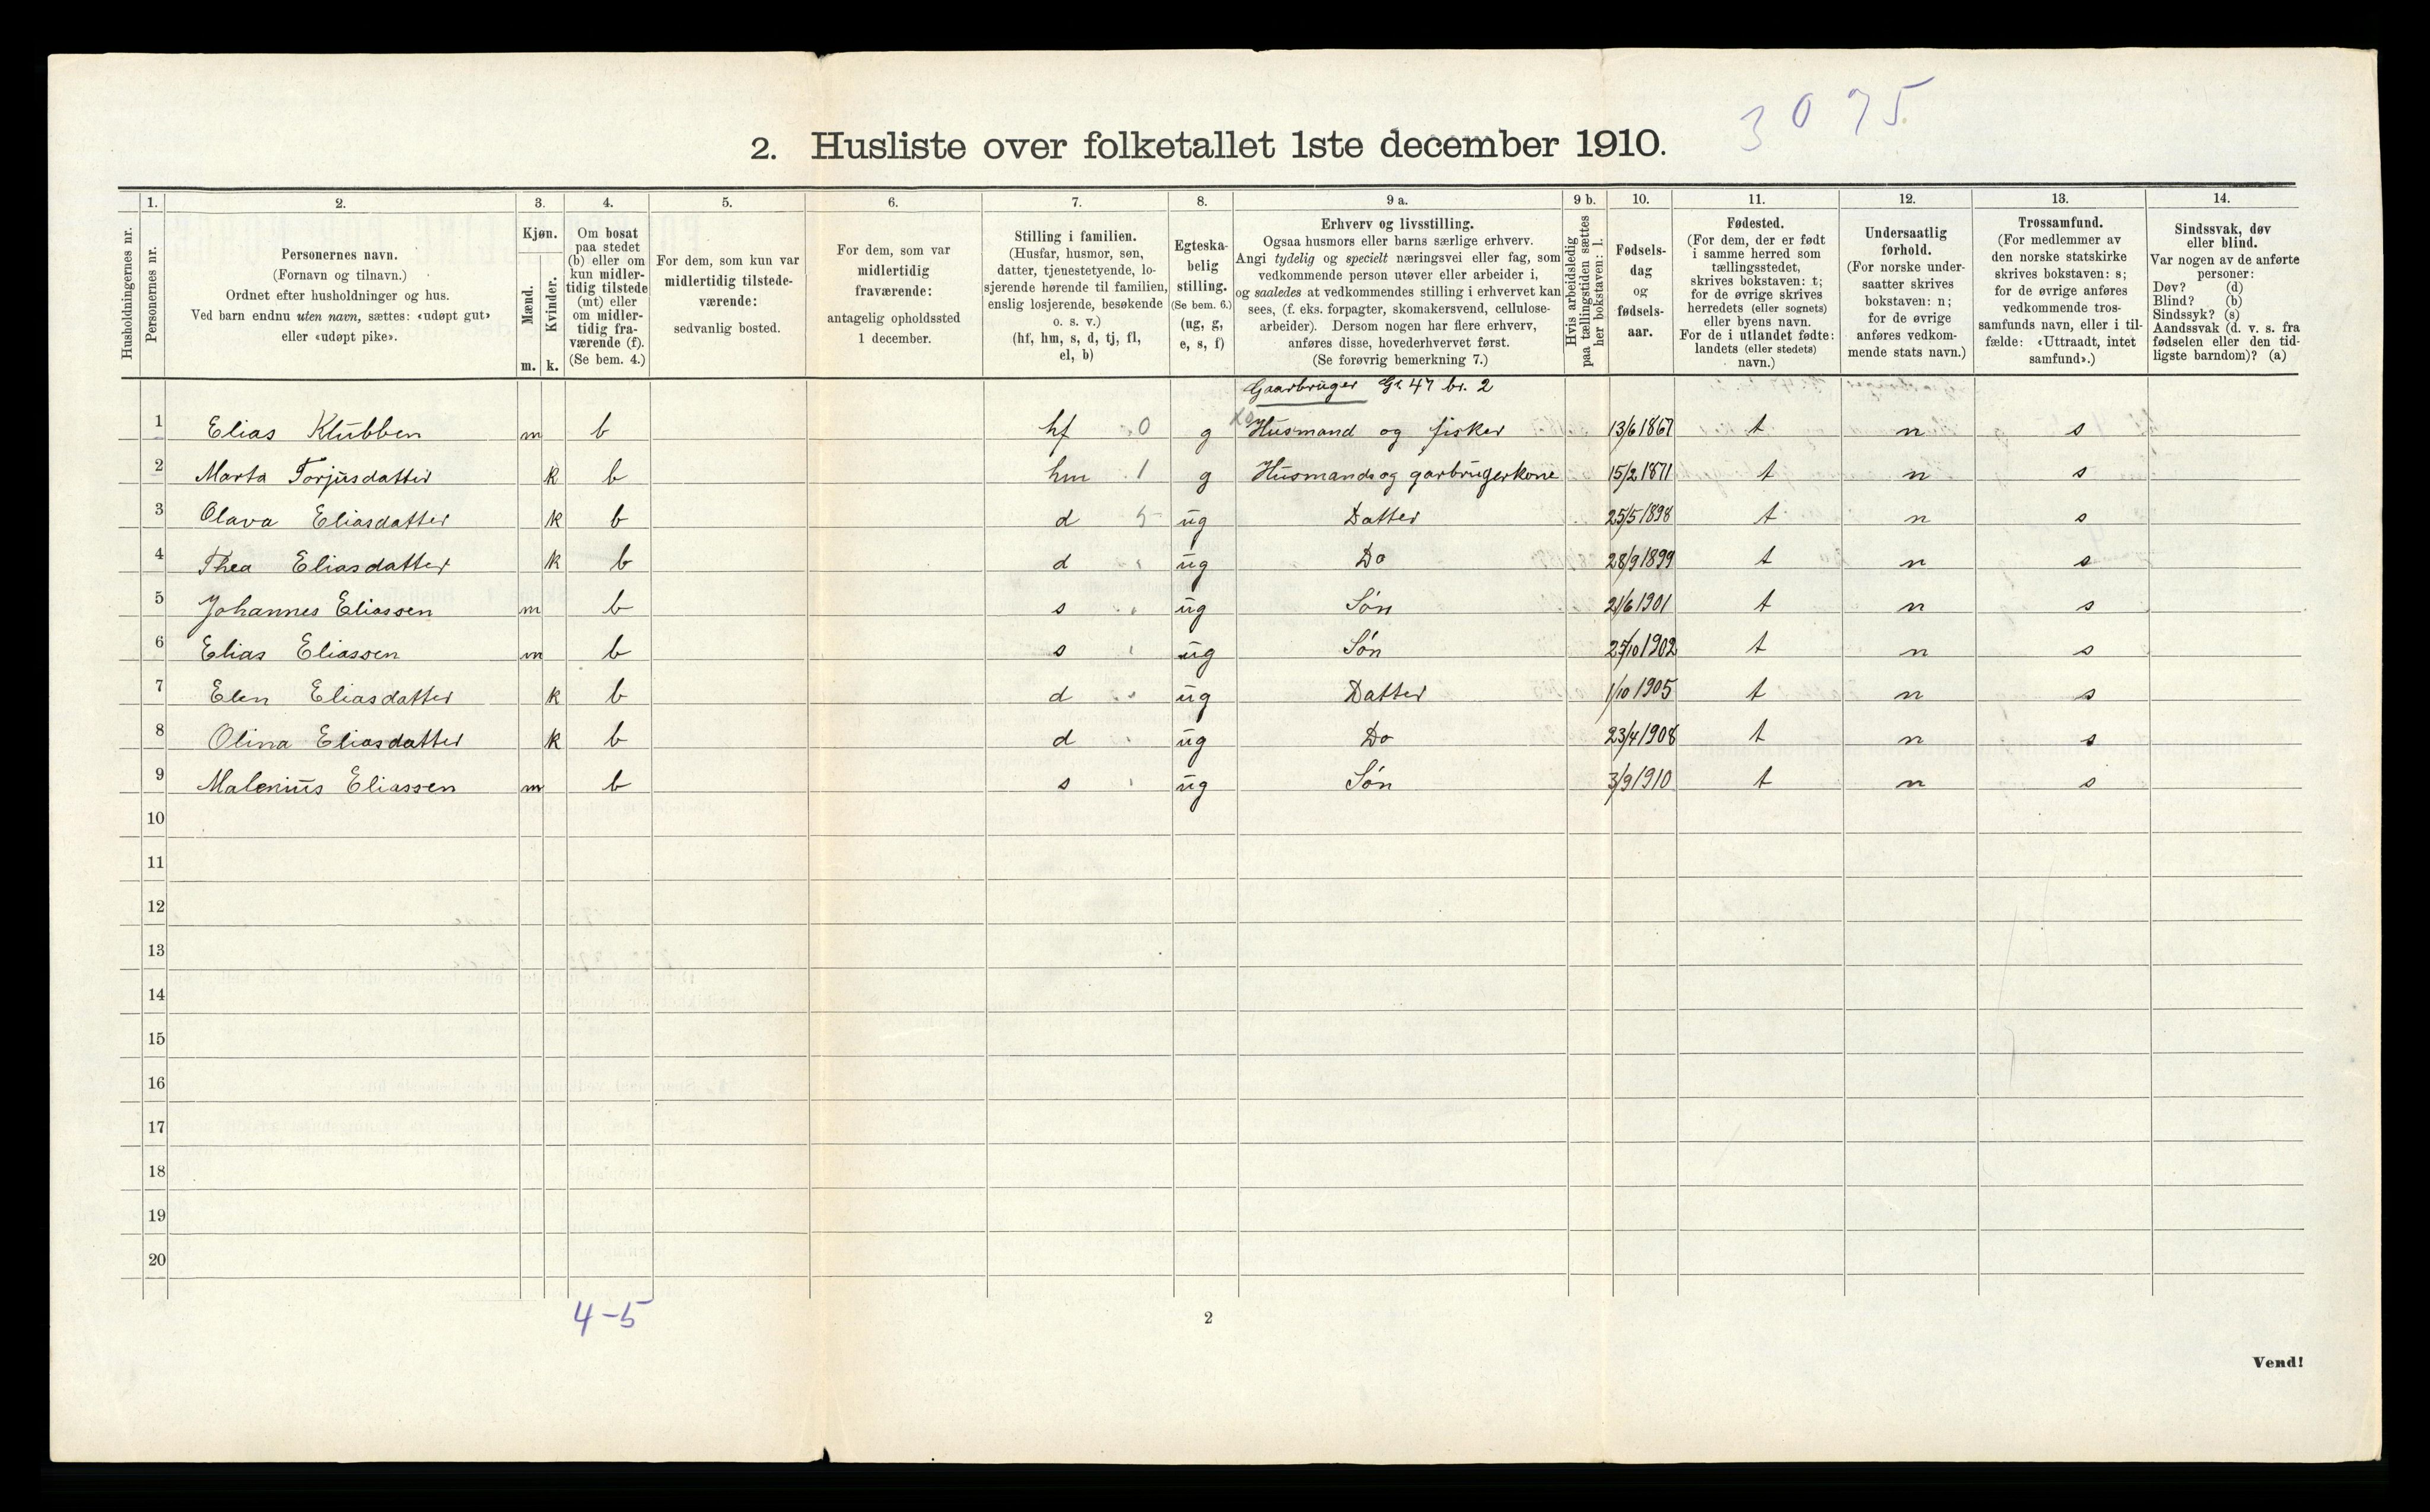 3075.
2. Husliste over folketallet 1ste december 1910.
Husholdningernes nr.
1.
Personernes nr.
2.
Personernes navn.
(Fornavn og tilnavn.)
Ordnet efter husholdninger og hus.
Ved barn endnu uten navn, sættes: «udøpt gut»
eller «udøpt pike».
3.
Kjøn.
Mænd.
m.
Kvinder.
k.
4.
Om bosat
paa stedet
(b) eller om
kun midler-
tidig tilstede
(mt) eller
om midler-
tidig fra-
værende (f).
(Se bem. 4.)
5.
For dem, som kun var
midlertidig tilstede-
værende:
sedvanlig bosted.
6.
For dem, som var
midlertidig
fraværende:
antagelig opholdssted
1 december.
7.
Stilling i familien.
(Husfar, husmor, søn,
datter, tjenestetyende, lo-
sjerende hørende til familien,
enslig losjerende, besøkende
o. s. v.)
(hf, hm, s, d, tj, fl,
el, b)
8.
Egteska-
belig
stilling.
(Se bem. 6.)
(ug, g,
e, s, f)
9 a.
Erhverv og livsstilling.
Ogsaa husmors eller barns særlige erhverv.
Angi tydelig og specielt næringsvei eller fag, som
vedkommende person utøver eller arbeider i,
og saaledes at vedkommendes stilling i erhvervet kan
sees, (f. eks. forpagter, skomakersvend, cellulose-
arbeider). Dersom nogen har flere erhverv,
anføres disse, hovederhvervet først.
(Se forøvrig bemerkning 7.)
9 b.
Hvis arbeidsledig
paa tællingstiden sættes
her bokstaven: l.
10.
Fødsels-
dag
og
fødsels-
aar.
11.
Fødested.
(For dem, der er født
i samme herred som
tællingsstedet,
skrives bokstaven: t;
for de øvrige skrives
herredets (eller sognets)
eller byens navn.
For de i utlandet fødte:
landets (eller stedets)
navn.)
12.
Undersaatlig
forhold.
(For norske under-
saatter skrives
bokstaven: n;
for de øvrige
anføres vedkom-
mende stats navn.)
13.
Trossamfund.
(For medlemmer av
den norske statskirke
skrives bokstaven: s;
for de øvrige anføres
vedkommende tros-
samfunds navn, eller i til-
fælde: «Uttraadt, intet
samfund».)
14.
Sindssvak, døv
eller blind.
Var nogen av de anførte
personer:
Døv? (d)
Blind? (b)
Sindssyk? (s)
Aandssvak (d. v. s. fra
fødselen eller den tid-
ligste barndom)? (a)
Gaarbruger Gr 47 br. 2
1 Elias Klubben m b hf 0 g Husmand og fisker 13/6 1867 t n s
2 Marta Torjusdatter k b hm 1 g Husmands og garbrugerkone 15/2 1871 t n s
3 Olava Eliasdatter k b d 5 ug Datter 25/5 1898 t n s
4 Thea Eliasdatter k b d ug Do 28/9 1899 t n s
5 Johannes Eliassen m b s ug Søn 21/6 1901 t n s
6 Elias Eliassen m b s ug Søn t n s
7 Elen Eliasdatter k b d ug Datter 1/10 1905 t n s
8 Olina Eliasdatter k b d ug Do 23/4 1908 t n s
9 Malenius Eliassen m b s ug Søn 3/9 1910 t n s
10
11
12
13
14
15
16
17
18
19
20
4-5
2
Vend!